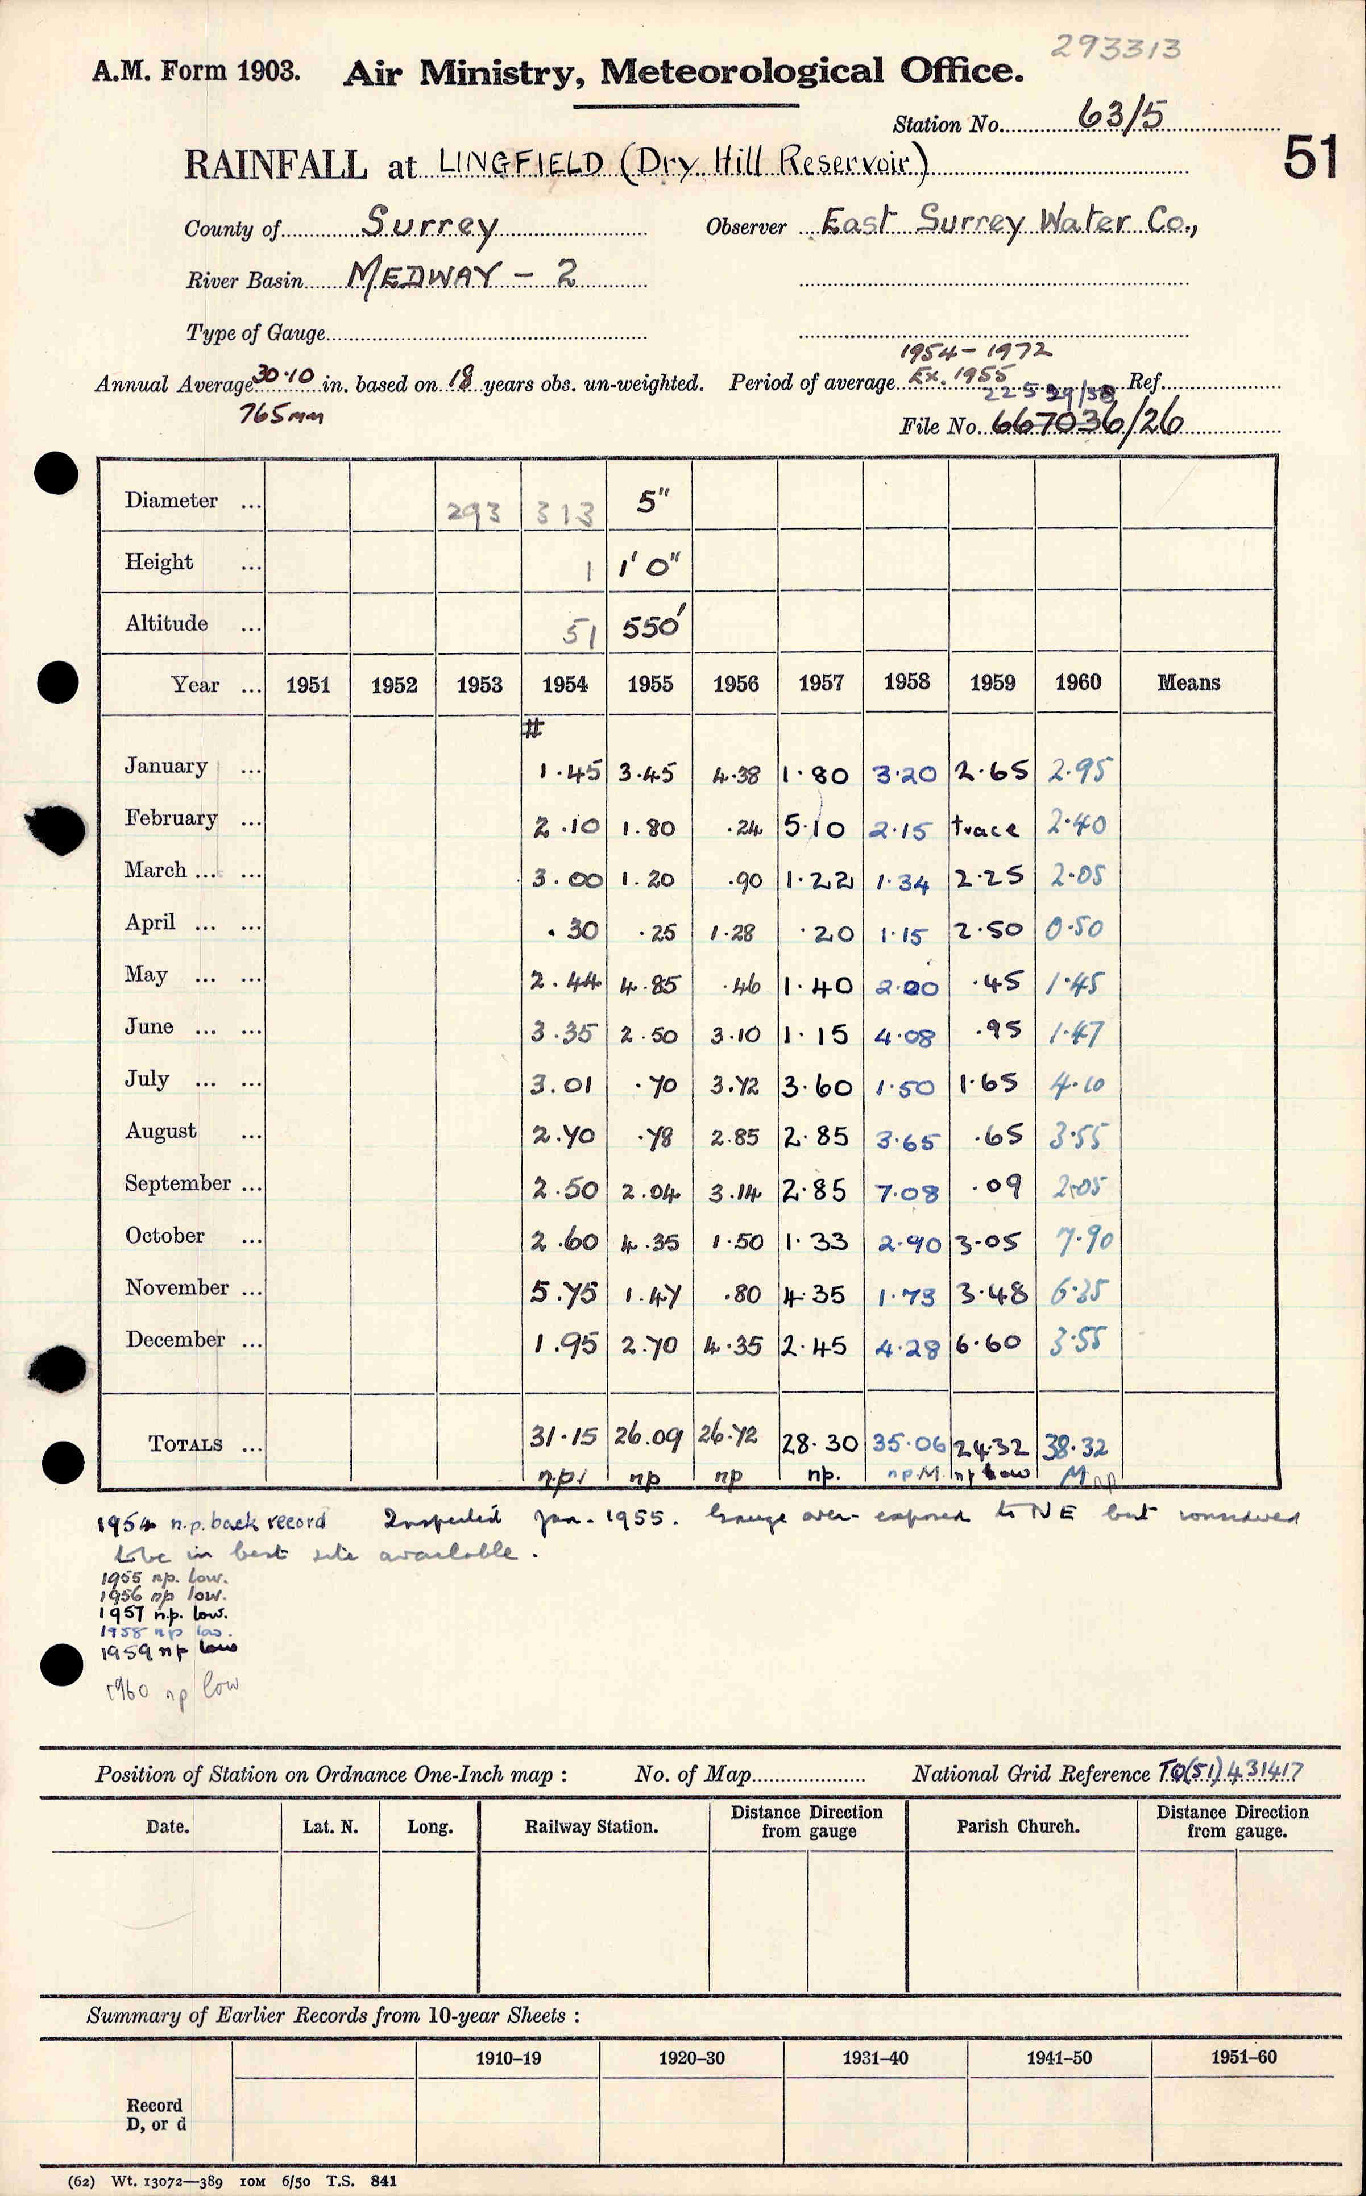 293313
A.M. Form 1903. Air Ministry, Meteorological Office.
Station No. 63/5
51
RAINFALL at LINGFIELD (Dry Hill Reservoir)
County of Surrey Observer East Surrey Water Co.,
River Basin MEDWAY - 2
Type of Gauge
1954 - 1972
Annual Average 30.10 in. based on 18 years obs. un-weighted. Period of average Ex. 1955 Ref.
765mm
File No. 667036/26
Diameter ... 293 313 5"
Height ... 1 1' 0"
Altitude ... 51 550'
Year ... 1951 1952 1953 1954 1955 1956 1957 1958 1959 1960 Means
#
January ... 1.45 3.45 4.38 1.80 3.20 2.65 2.95
February ... 2.10 1.80 .24 5.10 2.15 trace 2.40
March ... ... 3.00 1.20 .90 1.22 1.34 2.25 2.05
April ... ... .30 .25 1.28 .20 1.15 2.50 0.50
May ... ... 2.44 4.85 .46 1.40 2.00 .45 1.45
June ... ... 3.35 2.50 3.10 1.15 4.08 .95 1.47
July ... ... 3.01 .70 3.72 3.60 1.50 1.65 4.10
August ... 2.70 .78 2.85 2.85 3.65 .65 3.55
September ... 2.50 2.04 3.14 2.85 7.08 .09 2.05
October ... 2.60 4.35 1.50 1.33 2.90 3.05 7.90
November ... 5.75 1.47 .80 4.35 1.73 3.48 6.35
December ... 1.95 2.70 4.35 2.45 4.28 6.60 3.55
TOTALS ... 31.15 26.09 26.72 28.30 35.06 24.32 38.32
np np np np. np M np low M np
1954 n.p. back record Inspected Jan. 1955. Gauge over-exposed to NE but considered
to be in best site available.
1955 np. low.
1956 np low.
1957 n.p. low.
1958 np low.
1959 np low
1960 np low
Position of Station on Ordnance One-Inch map : No. of Map National Grid Reference TQ(51)431417
Date. Lat. N. Long. Railway Station. Distance Direction from gauge Parish Church. Distance Direction from gauge.
Summary of Earlier Records from 10-year Sheets :
1910–19 1920–30 1931–40 1941–50 1951–60
Record
D, or d
(62) Wt. 13072—389 10M 6/50 T.S. 841